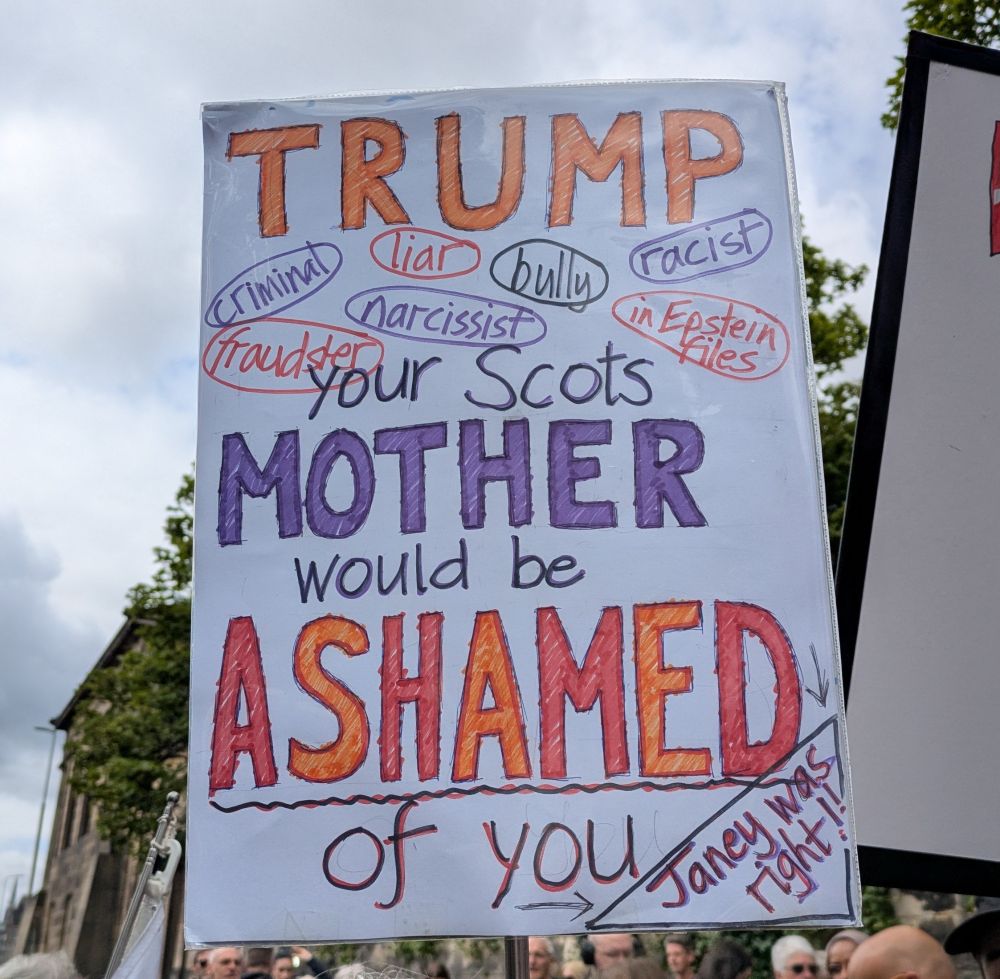 TRUMP
criminal liar bully racist
narcissist in Epstein
fraudster files
your Scots
MOTHER
would be
ASHAMED
of you
Janey was
right!!